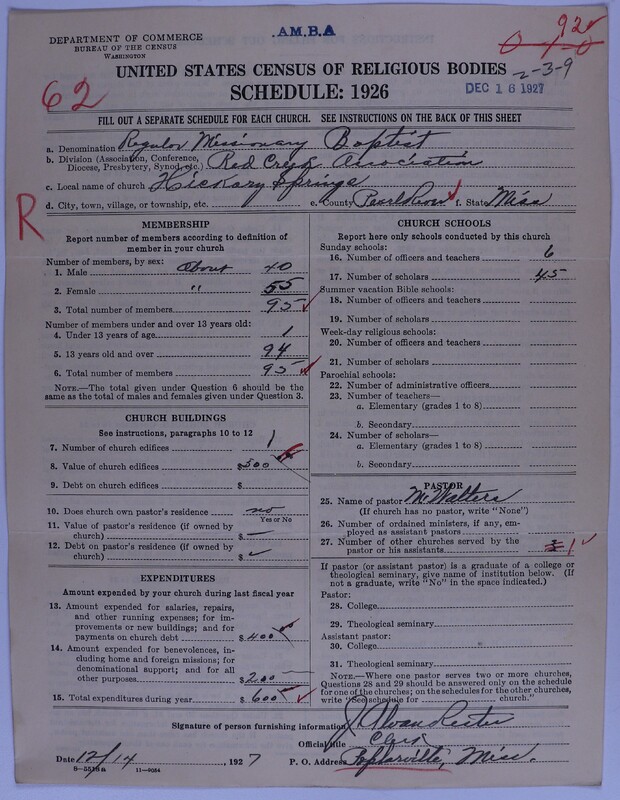 A.M.B.A
DEPARTMENT OF COMMERCE
BUREAU OF THE CENSUS
WASHINGTON
92
2-3-9
UNITED STATES CENSUS OF RELIGIOUS BODIES
62
SCHEDULE: 1926
DEC 16 1927
FILL OUT A SEPARATE SCHEDULE FOR EACH CHURCH. SEE INSTRUCTIONS ON THE BACK OF THIS SHEET
a. Denomination Regular Missionary Baptist
b. Division (Association, Conference, Diocese, Presbytery, Synod, etc.) Red Creek Association
c. Local name of church Hickary Springs
d. City, town, village, or township, etc. e. County Pearl River f. State Miss
R
MEMBERSHIP
Report number of members according to definition of
member in your church
Number of members, by sex:
1. Male About 40
2. Female " 55
3. Total number of members 95
Number of members under and over 13 years old:
4. Under 13 years of age 1
5. 13 years old and over 94
6. Total number of members 95
NOTE.—The total given under Question 6 should be the
same as the total of males and females given under Question 3.
CHURCH BUILDINGS
See instructions, paragraphs 10 to 12
7. Number of church edifices 1
8. Value of church edifices $500
9. Debt on church edifices $
10. Does church own pastor's residence no
Yes or No
11. Value of pastor's residence (if owned by
church) $ —
12. Debt on pastor's residence (if owned by
church) $
EXPENDITURES
Amount expended by your church during last fiscal year
13. Amount expended for salaries, repairs,
and other running expenses; for im-
provements or new buildings; and for
payments on church debt $400
14. Amount expended for benevolences, in-
cluding home and foreign missions; for
denominational support; and for all
other purposes $200
15. Total expenditures during year $600
CHURCH SCHOOLS
Report here only schools conducted by this church
Sunday schools:
16. Number of officers and teachers 6
17. Number of scholars 45
Summer vacation Bible schools:
18. Number of officers and teachers
19. Number of scholars
Week-day religious schools:
20. Number of officers and teachers
21. Number of scholars
Parochial schools:
22. Number of administrative officers
23. Number of teachers—
a. Elementary (grades 1 to 8)
b. Secondary
24. Number of scholars—
a. Elementary (grades 1 to 8)
b. Secondary
PASTOR
25. Name of pastor M Walters
(If church has no pastor, write "None")
26. Number of ordained ministers, if any, em-
ployed as assistant pastors
27. Number of other churches served by the
pastor or his assistants 1
If pastor (or assistant pastor) is a graduate of a college or
theological seminary, give name of institution below. (If
not a graduate, write "No" in the space indicated.)
Pastor:
28. College
29. Theological seminary
Assistant pastor:
30. College
31. Theological seminary
NOTE.—Where one pastor serves two or more churches,
Questions 28 and 29 should be answered only on the schedule
for one of the churches; on the schedules for the other churches,
write "See schedule for church."
Signature of person furnishing information J Alvan Lester
Official title Clerk
Date 12/14, 1927 P. O. Address Poplarville, Miss.
11—9054